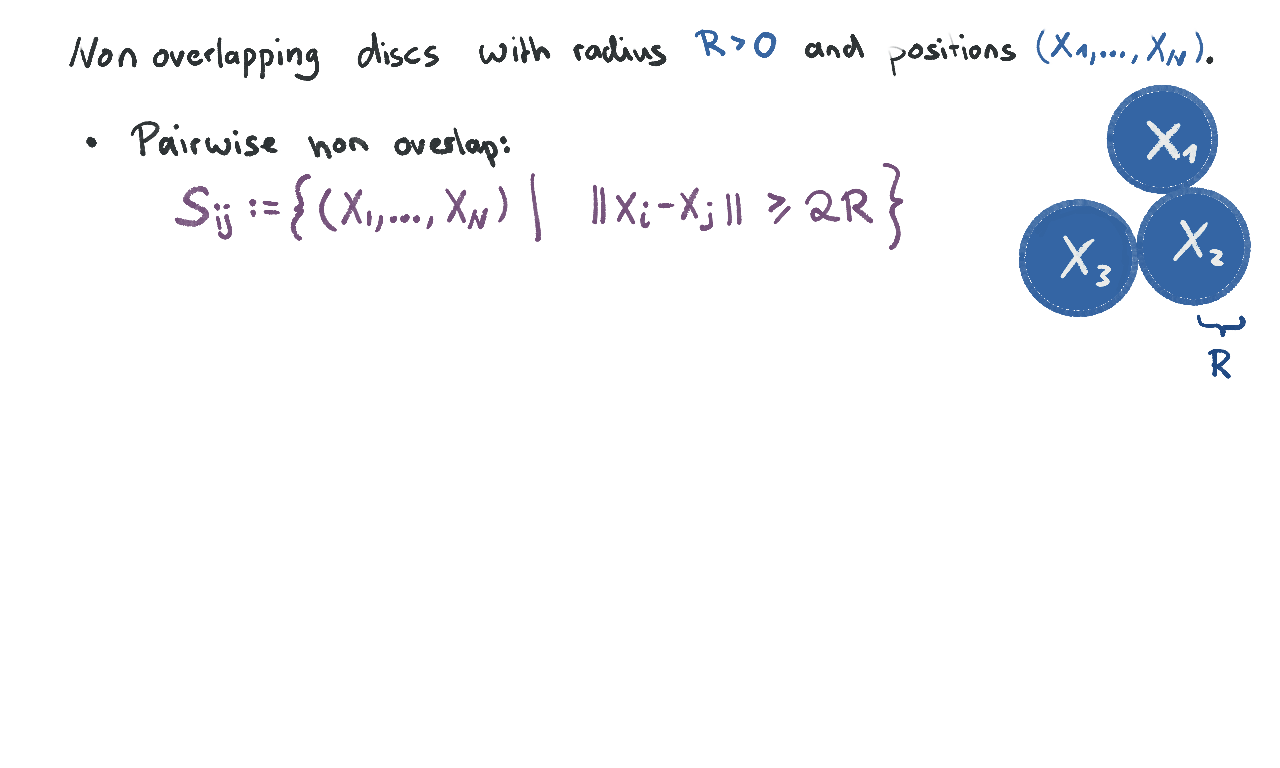 Non overlapping discs with radius R>0 and positions (X₁,...,X_N).
• Pairwise non overlap:
S_ij := {(X₁,...,X_N) | ||X_i-X_j|| ≥ 2R}
X₁
X₂
X₃
R